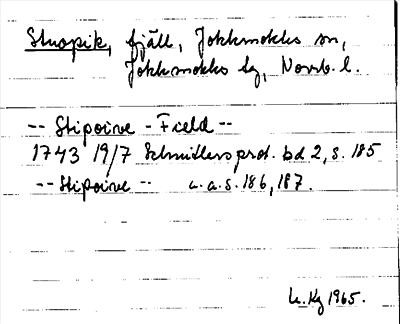 Stuopik, fjäll, Jokkmokks sn,
Jokkmokks lg, Norrb. l.
-- Stipoive - Field --
1743 19/7 Schnitlers prot. bd 2, s. 185
-- Stipoive -- a.a.s. 186, 187.
1965.